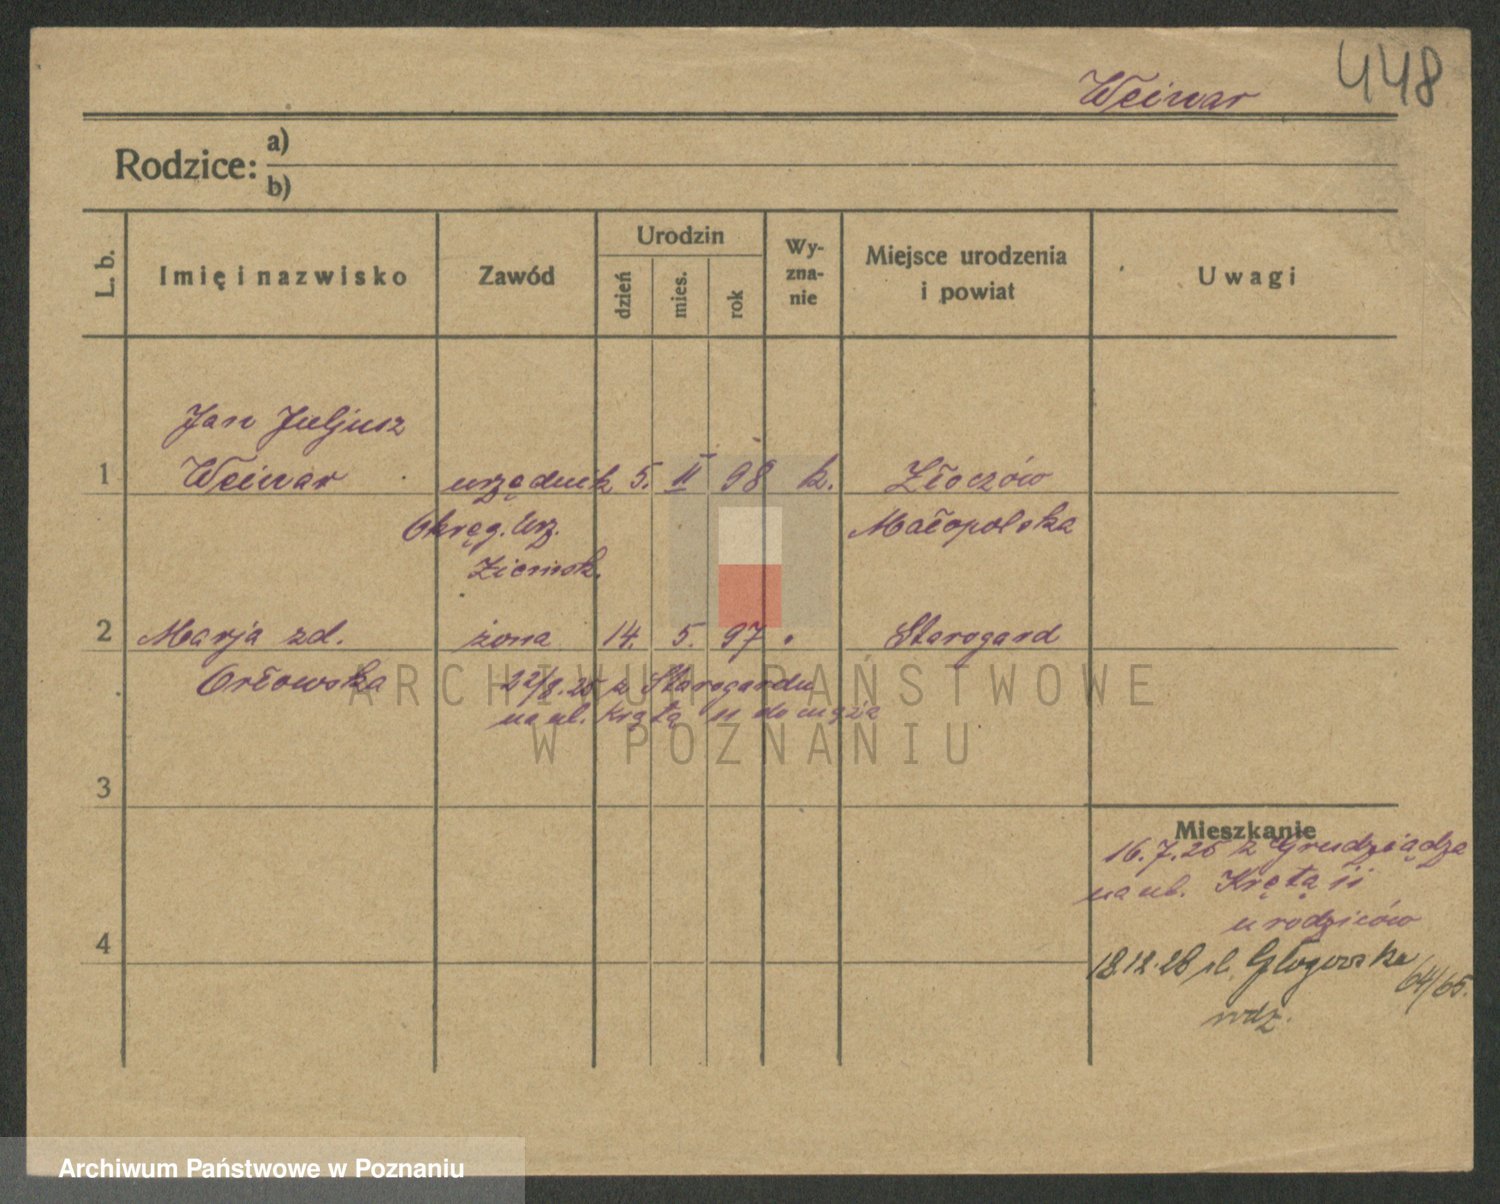 Weiwar 448
Rodzice: a)
b)
L. b. Imię i nazwisko Zawód Urodzin dzień mies. rok Wy-zna-nie Miejsce urodzenia i powiat Uwagi
Jan Juljusz
1 Weiwar urzędnik 5. II 98 k. Złoczów
Okręg. Urz. Małopolska
Ziemsk.
2 Marja zd. żona 14. 5. 97 " Starogard
Orłowska 22/8.25 z Starogardu
na ul. Krętą 11 do męża
3
Mieszkanie
16.7.25 z Grudziądza
na ul. Krętą 11
u rodziców
4
18.12.28 ul. Głogowska 64/65.
rodz.
ARCHIWUM PAŃSTWOWE
W POZNANIU
Archiwum Państwowe w Poznaniu